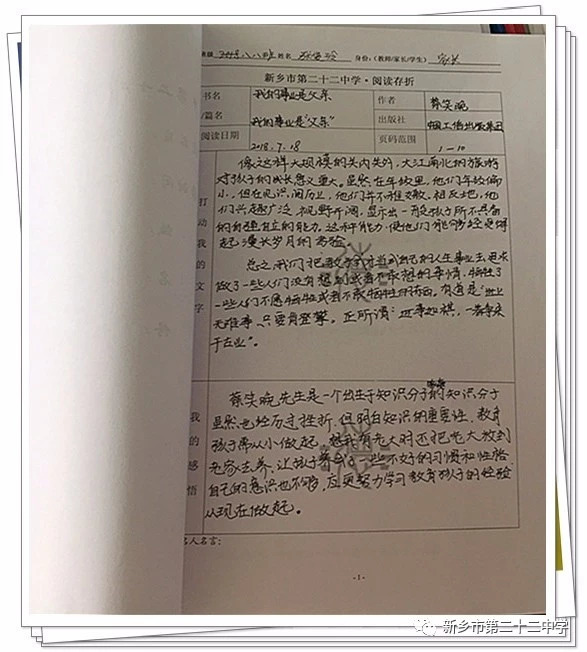 班级 2018.八八班 姓名 身份：（教师/家长/学生） 家长
新乡市第二十二中学·阅读存折
书名 我的事业是父亲 作者 蔡笑晚
/篇名 我的事业是"父亲" 出版社
阅读日期 2018.7.18 页码范围 1－10
打动我的文字
像这样大规模的关内关外，大江南北的旅游
对孩子的成长意义重大。虽然在年龄里，他们年龄偏
小，但在见识阅历上，他们并不难支撑，相反地，他
们兴趣广泛，视野开阔，显示出一般孩子所不具备
的自强自立的能力。这种能力使他们能够经受得
起漫长岁月的考验。
总之，我们把教子当成自己的人生事业去追求
做了一些人们没有想到或者不敢想的事情，牺牲了
一些人们不愿牺牲或者不敢牺牲的东西。有道是"世上
无难事，只要肯登攀。正所谓：世事如棋，一着争来
千古业"。
我的感悟
蔡笑晚先生是一个出生于知识分子家庭的知识分子
虽然也经历过挫折，但明白知识的重要性，教育
孩子需从小做起，想我有老大时还把老大放到
老家去养，让孩子养成了一些不好的习惯和性格
自己的意识也不够，应更努力学习教育孩子的经验
从现在做起。
名人名言：
-1-
新乡市第二十二中学